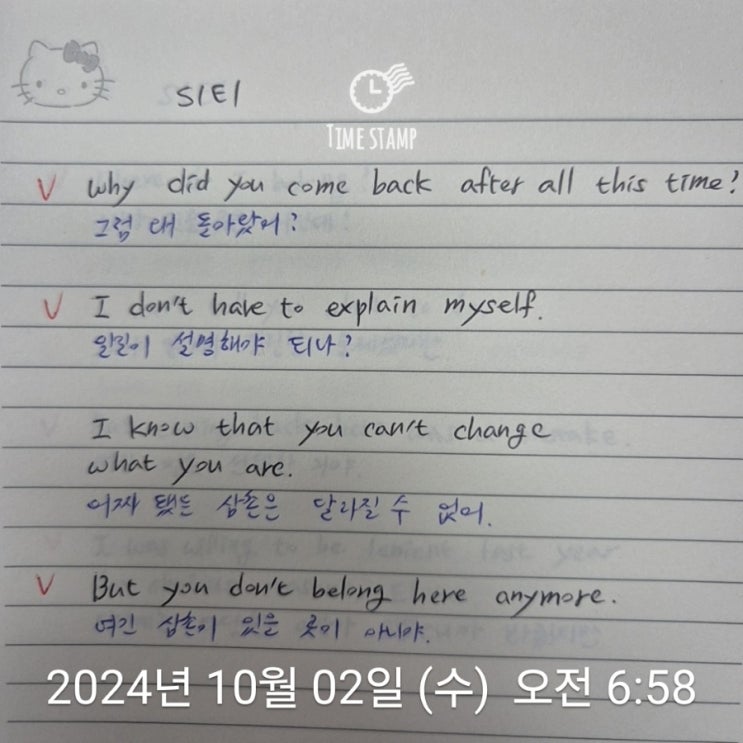 S1E1
TIME STAMP
V why did you come back after all this time?
그럼 왜 돌아왔어?
V I don't have to explain myself.
일일이 설명해야 되나?
I know that you can't change
what you are.
어찌 됐든 삼촌은 달라질 수 없어.
V But you don't belong here anymore.
여긴 삼촌이 있을 곳이 아니야.
2024년 10월 02일 (수) 오전 6:58